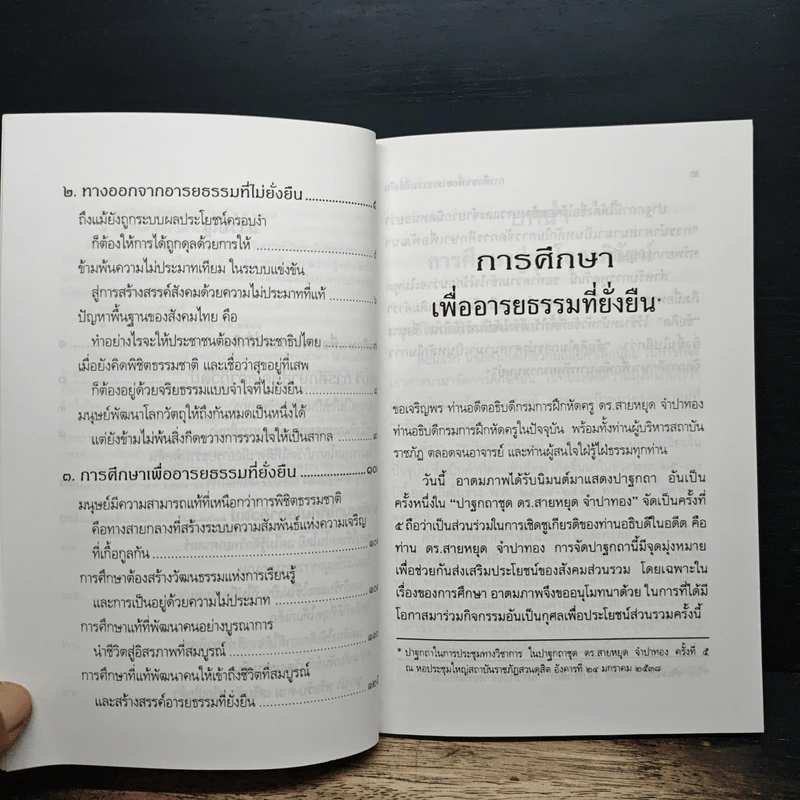 ๒. ทางออกจากอารยธรรมที่ไม่ยั่งยืน
ถึงแม้ยังถูกระบบผลประโยชน์ครอบงำ
ก็ต้องให้การได้ถูกดุลด้วยการให้
ข้ามพ้นความไม่ประมาทเทียม ในระบบแข่งขัน
สู่การสร้างสรรค์สังคมด้วยความไม่ประมาทที่แท้
ปัญหาพื้นฐานของสังคมไทย คือ
ทำอย่างไรจะให้ประชาชนต้องการประชาธิปไตย
เมื่อยังคิดพิชิตธรรมชาติ และเชื่อว่าสุขอยู่ที่เสพ
ก็ต้องอยู่ด้วยจริยธรรมแบบจำใจที่ไม่ยั่งยืน
มนุษย์พัฒนาโลกวัตถุให้ถึงกันหมดเป็นหนึ่งได้
แต่ยังข้ามไม่พ้นสิ่งกีดขวางการรวมใจให้เป็นสากล
๓. การศึกษาเพื่ออารยธรรมที่ยั่งยืน
มนุษย์มีความสามารถแท้ที่เหนือกว่าการพิชิตธรรมชาติ
คือทางสายกลางที่สร้างระบบความสัมพันธ์แห่งความเจริญ
ที่เกื้อกูลกัน
การศึกษาต้องสร้างวัฒนธรรมแห่งการเรียนรู้
และการเป็นอยู่ด้วยความไม่ประมาท
การศึกษาแท้ที่พัฒนาคนอย่างบูรณาการ
นำชีวิตสู่อิสรภาพที่สมบูรณ์
การศึกษาที่แท้พัฒนาคนให้เข้าถึงชีวิตที่สมบูรณ์
และสร้างสรรค์อารยธรรมที่ยั่งยืน
การศึกษา
เพื่ออารยธรรมที่ยั่งยืน*
ขอเจริญพร ท่านอดีตอธิบดีกรมการฝึกหัดครู ดร.สายหยุด จำปาทอง
ท่านอธิบดีกรมการฝึกหัดครูในปัจจุบัน พร้อมทั้งท่านผู้บริหารสถาบัน
ราชภัฏ ตลอดจนอาจารย์ และท่านผู้สนใจใฝ่รู้ใฝ่ธรรมทุกท่าน
วันนี้ อาตมภาพได้รับนิมนต์มาแสดงปาฐกถา อันเป็น
ครั้งหนึ่งใน “ปาฐกถาชุด ดร.สายหยุด จำปาทอง” จัดเป็นครั้งที่
๕ ถือว่าเป็นส่วนร่วมในการเชิดชูเกียรติของท่านอธิบดีในอดีต คือ
ท่าน ดร.สายหยุด จำปาทอง การจัดปาฐกถานี้มีจุดมุ่งหมาย
เพื่อช่วยกันส่งเสริมประโยชน์ของสังคมส่วนรวม โดยเฉพาะใน
เรื่องของการศึกษา อาตมภาพจึงขออนุโมทนาด้วย ในการที่ได้มี
โอกาสมาร่วมกิจกรรมอันเป็นกุศลเพื่อประโยชน์ส่วนรวมครั้งนี้
* ปาฐกถาในการประชุมทางวิชาการ ในปาฐกถาชุด ดร.สายหยุด จำปาทอง ครั้งที่ ๕
ณ หอประชุมใหญ่สถาบันราชภัฏสวนดุสิต อังคารที่ ๒๔ มกราคม ๒๕๓๘